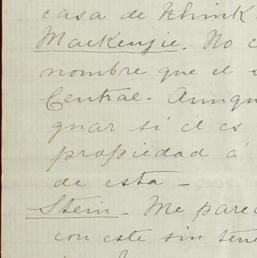 casa de Klink
MacKenzie. No c
nombre que el
Central. Aunqu
gnar si el es
propiedad á
de esta —
Stein. Me parec
con este sin tene